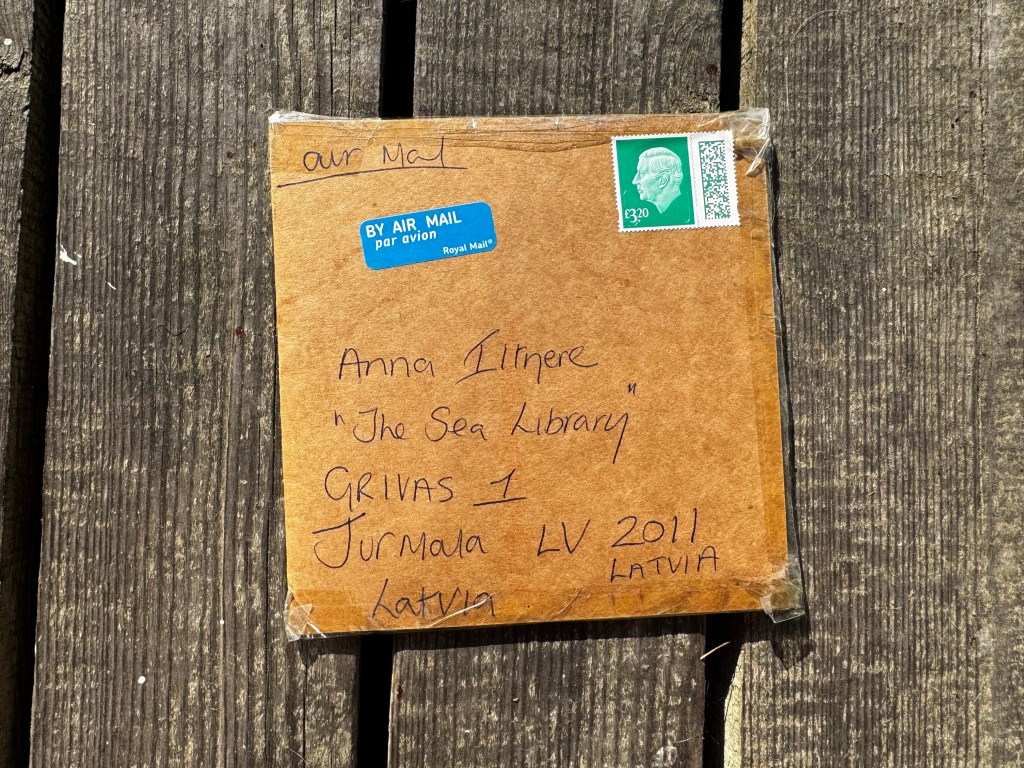 air Mail
£3.20
BY AIR MAIL
par avion
Royal Mail®
Anna Iltnere
"The Sea Library"
GRIVAS 1
Jurmala LV 2011
LATVIA
Latvia